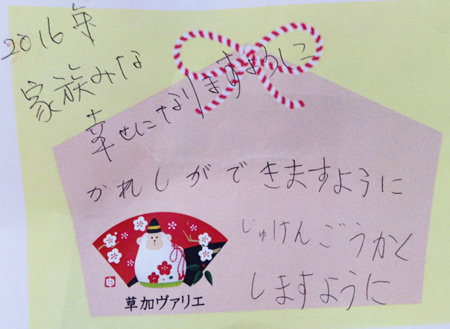 2016年
家族みな
幸せになりますように
かれしができますように
じゅけんごうかく
しますように
草加ヴァリエ